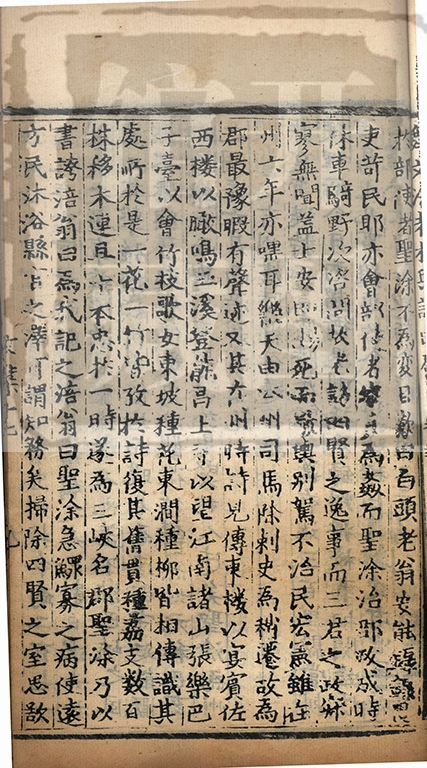 部使者聖涂不為変且歎曰百頭老翁安能
吏苛民耶亦會部使者其為姦而聖涂治郡政成時
休車騎野次咨問故老訪四賢之逸事而三君之政寂
寥無聞盖士安即死而輿別駕不治民宏憲雖在
州六年亦嘿耳樂天由江州司馬除刺史為稍遷故為
郡最豫暇有聲迹又其在州時詩見傳東楼以宴賓佐
西楼以瞰鳴玉溪登龍昌上寺以望江南諸山張樂巴
子臺以會竹枝歌女東坡種花東澗種柳皆相傳識其
處所於是一花一竹皆攷於詩復其舊貫種荔支数百
株移木連且十本忠於一時遂為三峽名郡聖涂乃以
書誇涪翁曰為我記之涪翁曰聖涂急鰥寡之病使遠
方民沐浴縣官之澤可謂知務矣掃除四賢之室思欲